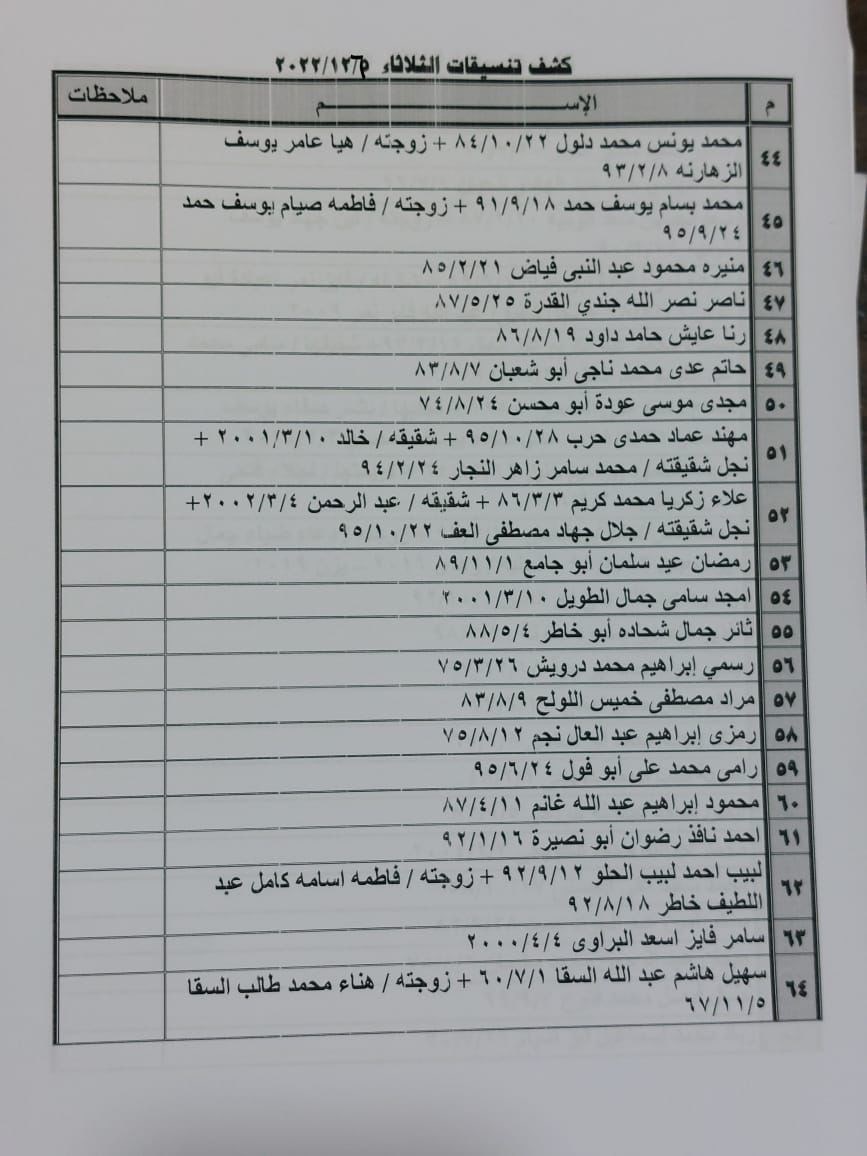 كشف تنسيقات الثلاثاء ٢٠٢٢/١٢/٦م
م الإســـــم ملاحظات
٤٤ محمد يونس محمد دلول ٨٤/١٠/٢٢ + زوجته / هيا عامر يوسف
الزهارنه ٩٣/٢/٨
٤٥ محمد بسام يوسف حمد ٩١/٩/١٨ + زوجته / فاطمه صيام يوسف حمد
٩٥/٩/٢٤
٤٦ منيره محمود عبد النبى فياض ٨٥/٢/٢١
٤٧ ناصر نصر الله جندي القدرة ٨٧/٥/٢٥
٤٨ رنا عايش حامد داود ٨٦/٨/١٩
٤٩ حاتم عدى محمد ناجى أبو شعبان ٨٣/٨/٧
٥٠ مجدى موسى عودة أبو محسن ٧٤/٨/٢٤
٥١ مهند عماد حمدى حرب ٩٥/١٠/٢٨ + شقيقه / خالد ٢٠٠١/٣/١٠ +
نجل شقيقته / محمد سامر زاهر النجار ٩٤/٢/٢٤
٥٢ علاء زكريا محمد كريم ٨٦/٣/٣ + شقيقه / عبد الرحمن ٢٠٠٢/٣/٤+
نجل شقيقته / جلال جهاد مصطفى العف ٩٥/١٠/٢٢
٥٣ رمضان عيد سلمان أبو جامع ٨٩/١١/١
٥٤ امجد سامى جمال الطويل ٢٠٠١/٣/١٠
٥٥ ثائر جمال شحاده أبو خاطر ٨٨/٥/٤
٥٦ رسمي إبراهيم محمد درويش ٧٥/٣/٢٦
٥٧ مراد مصطفى خميس اللولح ٨٣/٨/٩
٥٨ رمزى إبراهيم عبد العال نجم ٧٥/٨/١٢
٥٩ رامى محمد على أبو فول ٩٥/٦/٢٤
٦٠ محمود إبراهيم عبد الله غانم ٨٧/٤/١١
٦١ احمد نافذ رضوان أبو نصيرة ٩٢/١/١٦
٦٢ لبيب احمد لبيب الحلو ٩٢/٩/١٢ + زوجته / فاطمه اسامه كامل عبد
اللطيف خاطر ٩٢/٨/١٨
٦٣ سامر فايز اسعد البراوى ٢٠٠٠/٤/٤
٦٤ سهيل هاشم عبد الله السقا ٦٠/٧/١ + زوجته / هناء محمد طالب السقا
٦٧/١١/٥